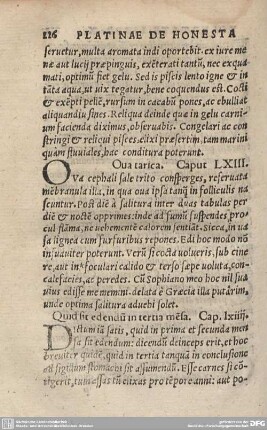 226 PLATINAE DE HONESTA
seruetur, multa aromata indi oportebit. ex iure me
næ aut lucij præpinguis, exẽterati tantũ, nec exqua
mati, optimũ fiet gelu. Sed is piscis lento igne & in
tãta aqua, ut uix tegatur, bene coquendus est. Cocti
& exẽpti pelle, rursum in cacabũ pones, ac ebulliat
aliquandiu sines. Reliqua deinde quæ in gelu carni
um facienda diximus, obseruabis. Congelari ac con
stringi & reliqui pisces, etsi præsertim, tam marini
quàm fluuiales, hac conditura poterunt.
Oua tarica. Caput LXIII.
OVa cephali sale trito consperges, reseruata
mẽbranula illa, in qua oua ipsa tanq̃ in folliculis na
scuntur. Post diẽ à salitura inter duas tabulas per
diẽ & noctẽ opprimes: inde ad fumũ suspendes pro
cul flãma, ne uehementẽ calorem sentiat. Sicca, in ua
sa lignea cum furfuribus repones. Edi hoc modo nõ
in suauiter poterunt. Verũ si cocta uolueris, sub cine
re, aut in foculari calido & terso sæpe uoluta, con-
calefacies, ac peredes. Cũ Sophiano meo hoc nil sua
uius edisse me memini. delata è Græcia illa putãrim,
unde optima salitura aduehi solet.
Quid sit edendũ in tertia mẽsa. Cap. lxiiij.
DIctum iã satis, quid in prima et secunda men
sa sit edendum: dicendũ deinceps erit, et hoc
breuiter quidẽ, quid in tertia tanquã in conclusione
ad sigillum stomachi sit assumendũ. Esse carnes si cõ
tigerit, tum assas tũ elixas pro tẽpore anni: aut po-